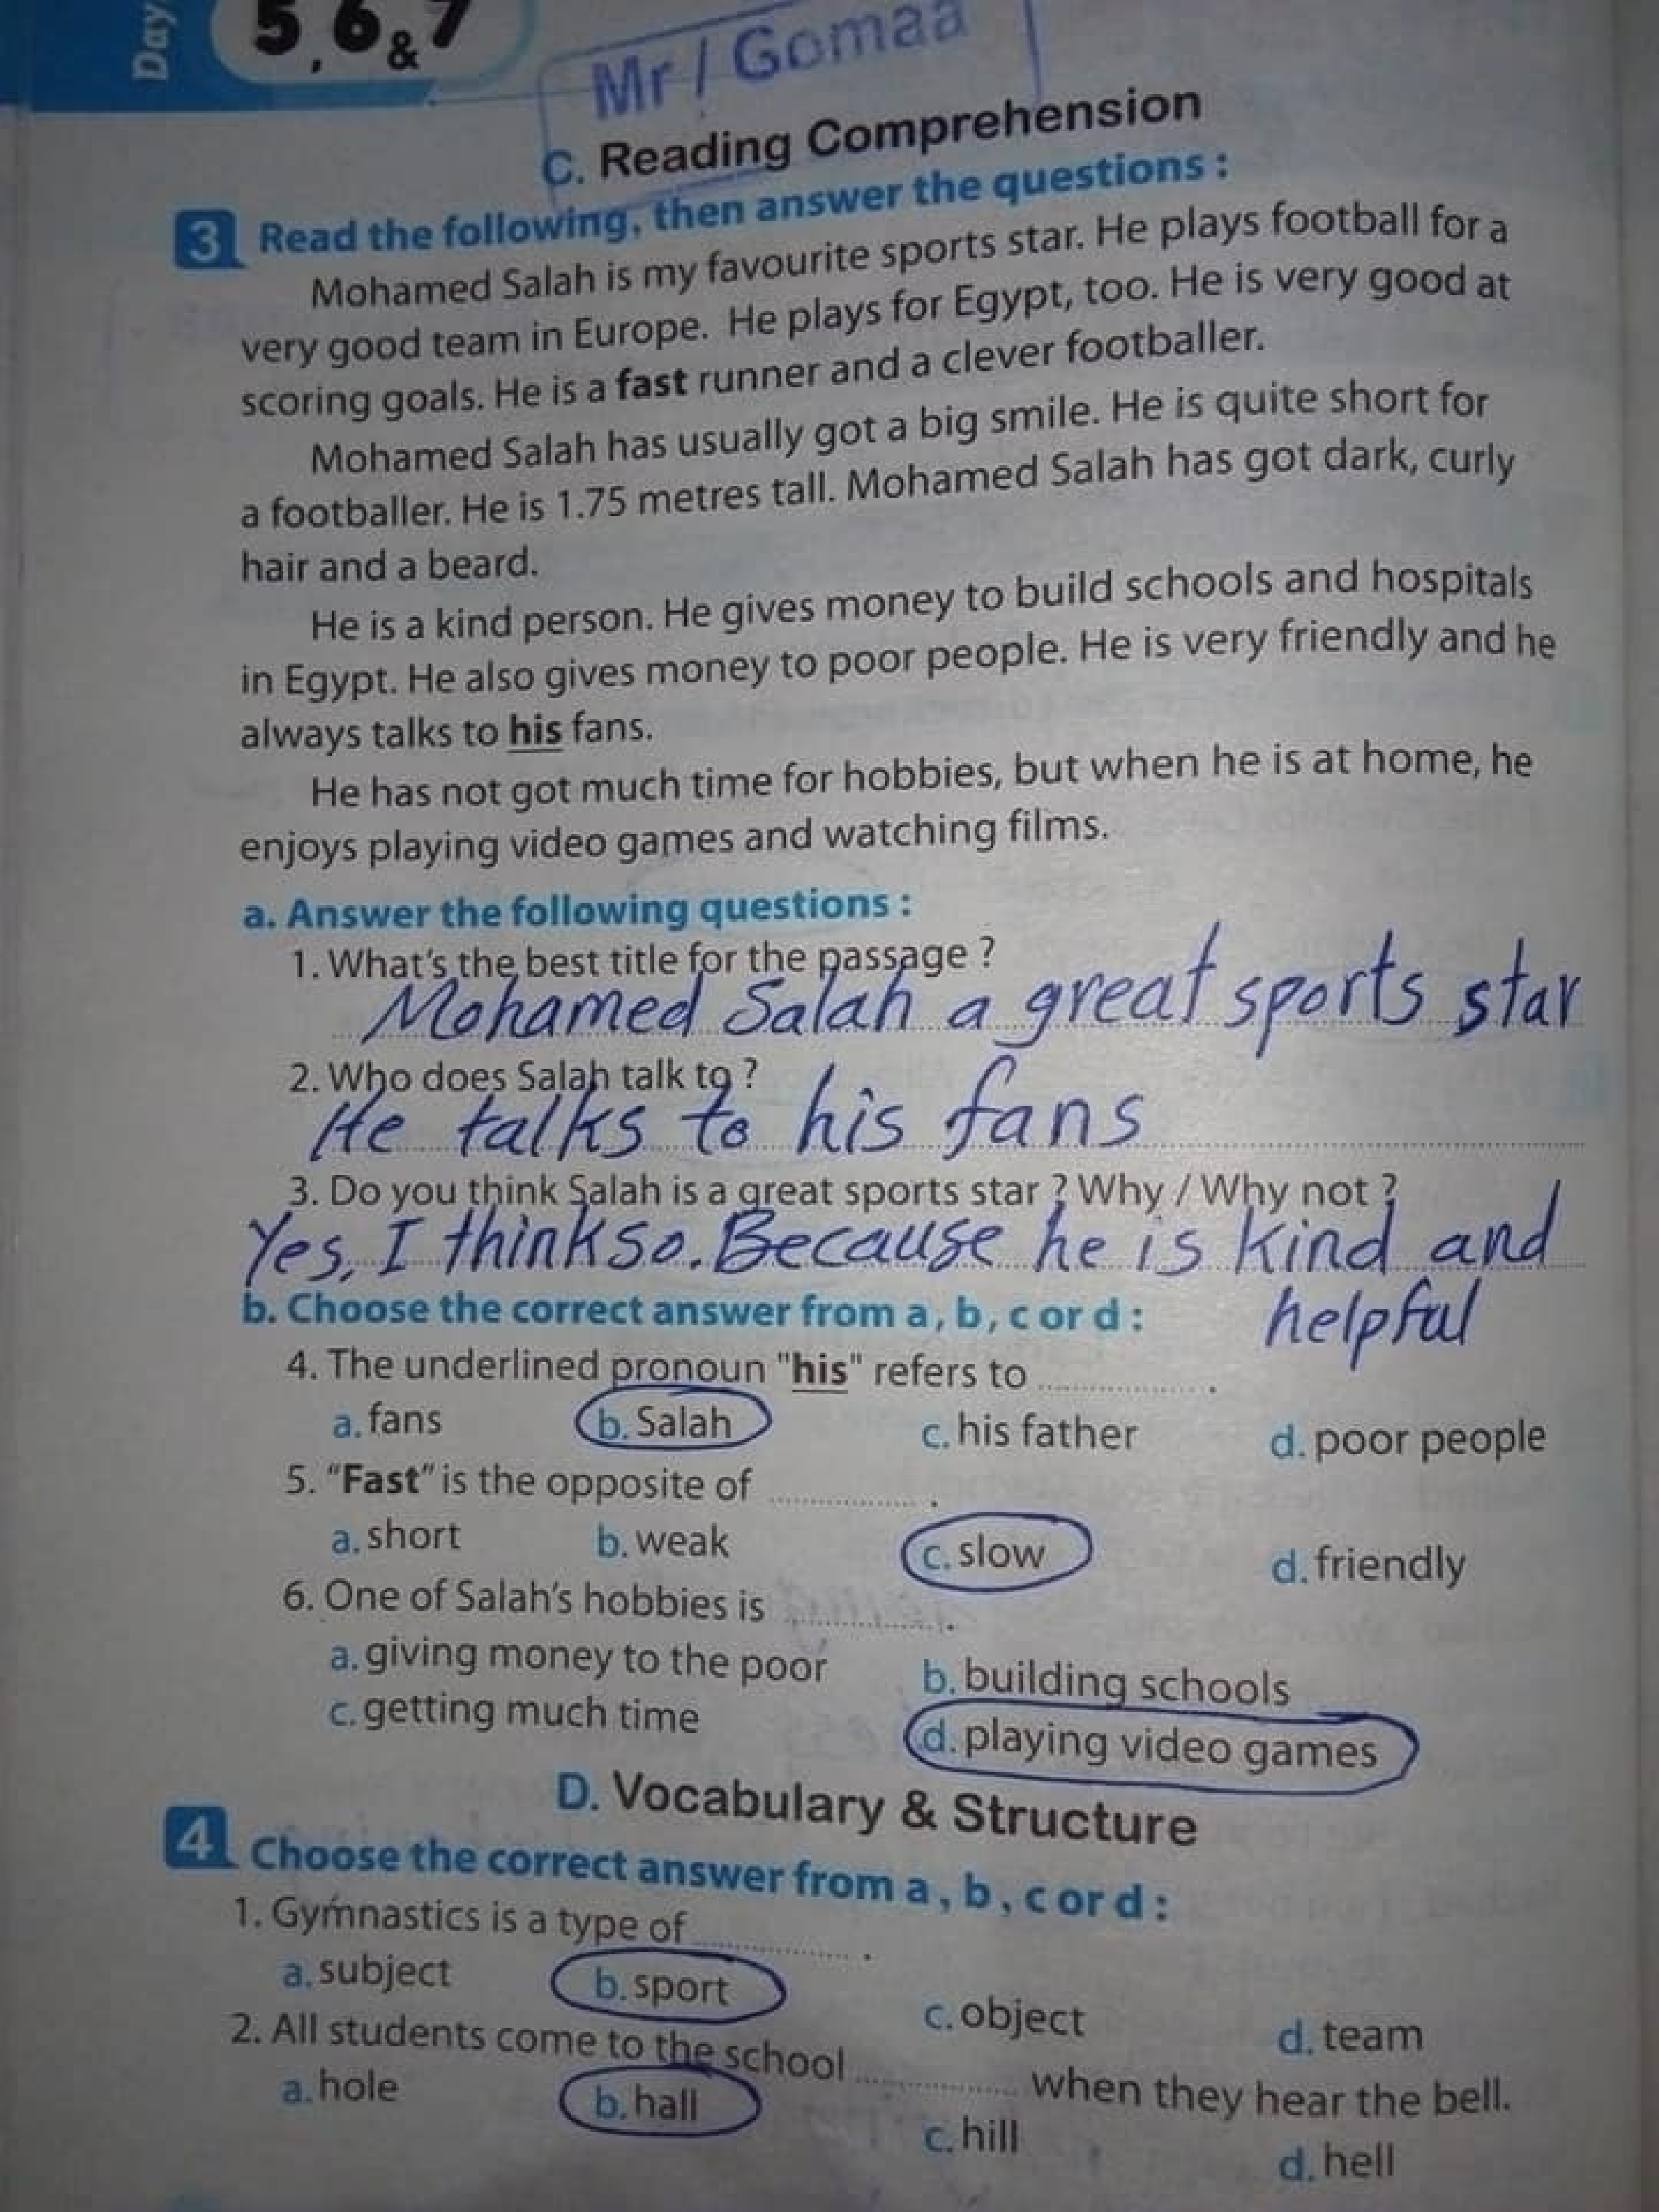 Day
5, 6 & 7
Mr / Gomaa
C. Reading Comprehension
3 Read the following, then answer the questions :
Mohamed Salah is my favourite sports star. He plays football for a
very good team in Europe. He plays for Egypt, too. He is very good at
scoring goals. He is a fast runner and a clever footballer.
Mohamed Salah has usually got a big smile. He is quite short for
a footballer. He is 1.75 metres tall. Mohamed Salah has got dark, curly
hair and a beard.
He is a kind person. He gives money to build schools and hospitals
in Egypt. He also gives money to poor people. He is very friendly and he
always talks to his fans.
He has not got much time for hobbies, but when he is at home, he
enjoys playing video games and watching films.
a. Answer the following questions :
1. What's the best title for the passage ?
Mohamed Salah a great sports star
2. Who does Salah talk to ?
He talks to his fans
3. Do you think Salah is a great sports star ? Why / Why not ?
Yes, I think so. Because he is kind and
helpful
b. Choose the correct answer from a , b , c or d :
4. The underlined pronoun "his" refers to ................ .
a. fans b. Salah c. his father d. poor people
5. “Fast” is the opposite of ................ .
a. short b. weak c. slow d. friendly
6. One of Salah's hobbies is ................ .
a. giving money to the poor b. building schools
c. getting much time d. playing video games
D. Vocabulary & Structure
4 Choose the correct answer from a , b , c or d :
1. Gymnastics is a type of ................ .
a. subject b. sport c. object d. team
2. All students come to the school ................ when they hear the bell.
a. hole b. hall c. hill d. hell